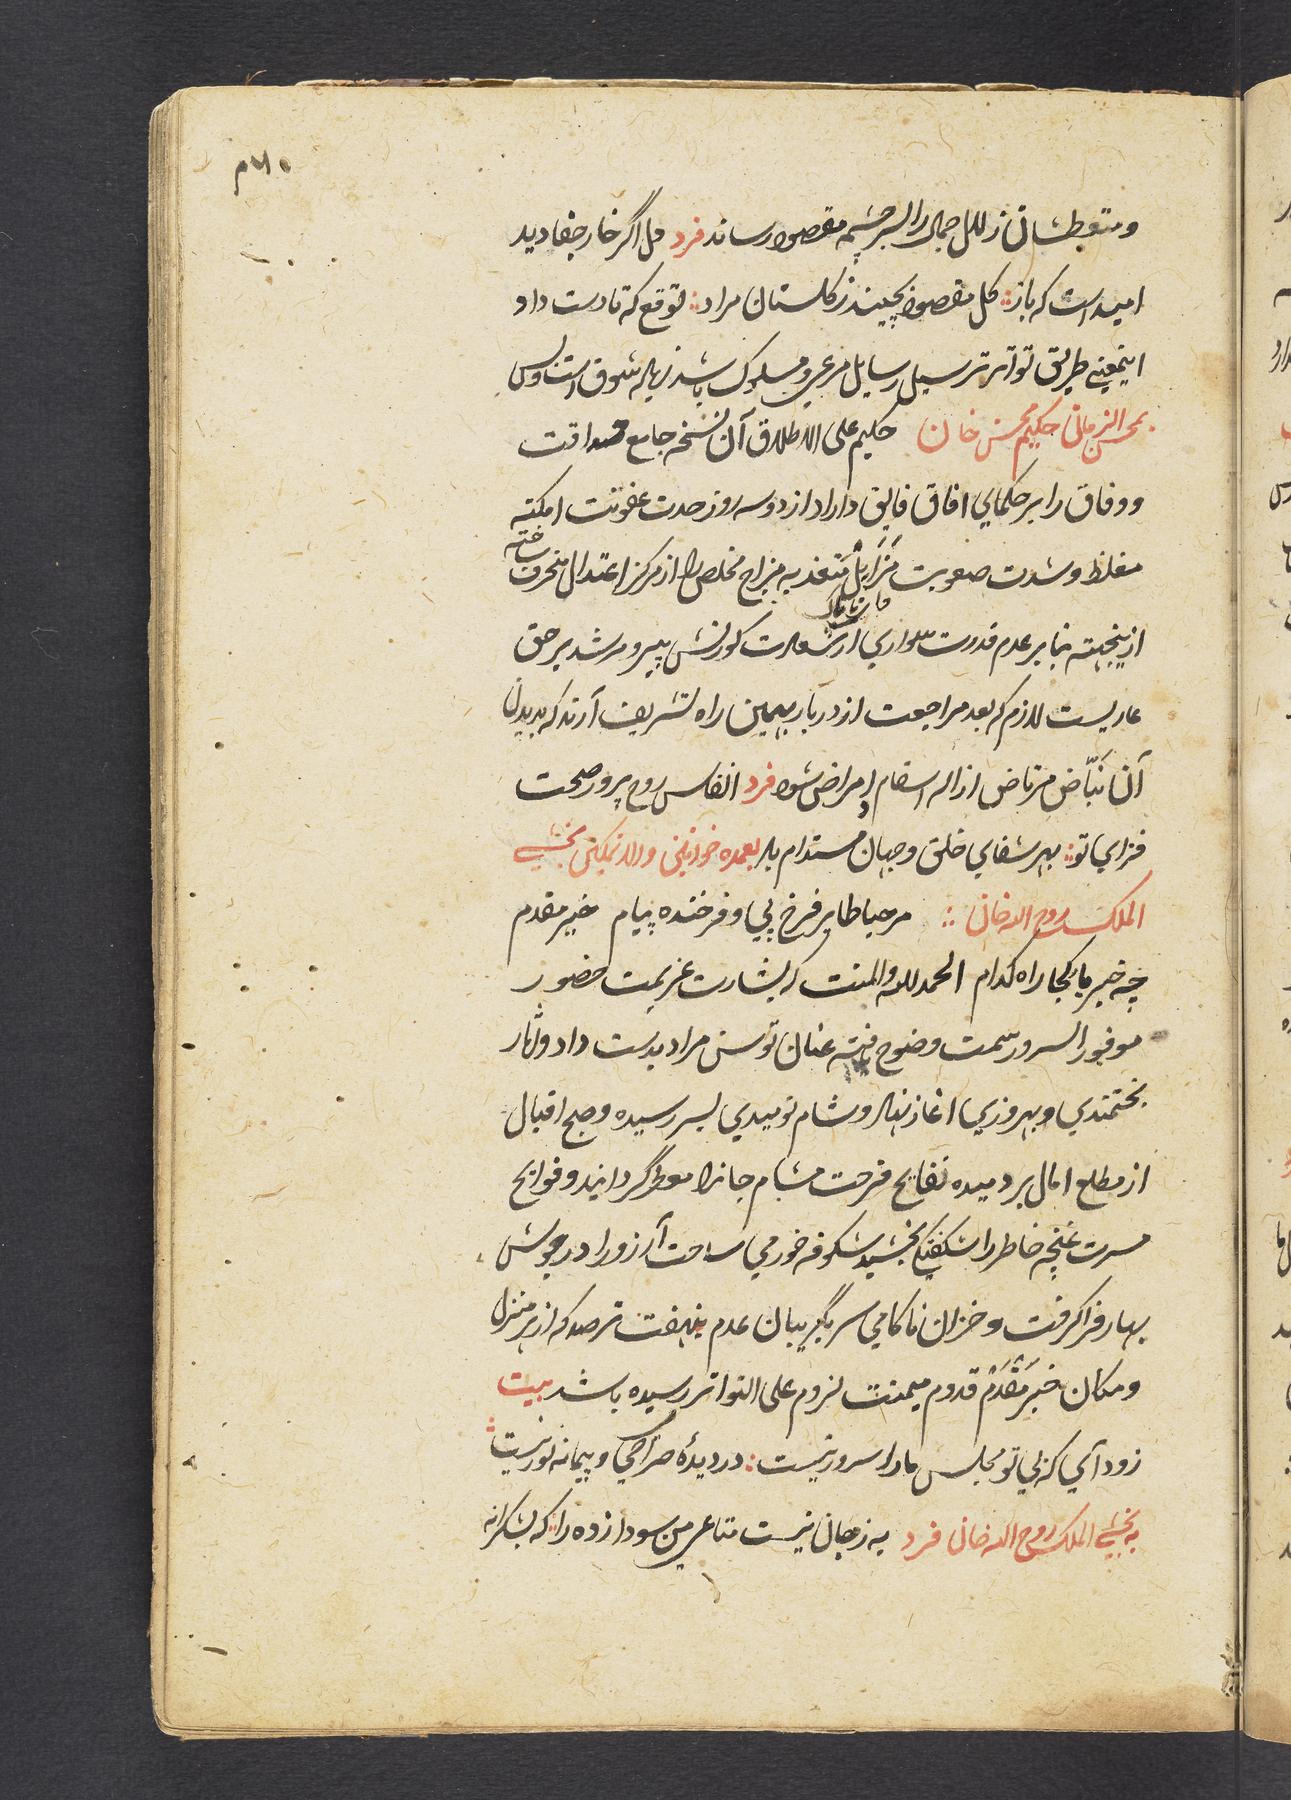 ومتعطشان زلال جمال را بسرچشمه مقصود رساند فرد دل اگر خار جفا دید
امید است که باز :: گل مقصود بچیند ز گلستان مراد :: توقع که تا دست داد
اینمعنی طریق تواتر ترسیل رسایل مرعی و مسلوک باشد زیاده شوق است و بس
بمحسن الزمانی حکیم محسن خان حکیم علی الاطلاق آن نسخه جامع صداقت
و وفاق را بر حکمای افاق فایق دارد از دو سه روز حدت عفونت امکنه
مغلظ و شدت صعوبت مزابل متعذیه مزاج مخلص را از مرکز اعتدال منحرف ساخته
ازینجهته بنابر عدم قدرت سواری از سعادت کورنش پیر و مرشد برحق
عاریست لازم که بعد مراجعت از دربار بهمین راه تشریف آرند که بدیدن
آن نبّاض مرتاض ازاله اسقام و امراض شود فرد انفاس روح پرور صحت
فزای تو :: بهر شفای خلق و جهان مستدام باد بعمده خوانین والا تمکین بخشی
الملک روح الله خان :: مرحبا طایر فرخ پی و فرخنده پیام خیر مقدم
چه خبر یار کجا راه کدام الحمد لله والمنت که بشارت عزیمت حضور
موفور السرور سمت وضوح یافته عنان توسن مراد بدست داد و نهار
بختمندی و بهروزی اغاز نهاد و شام نومیدی بسر رسیده و صبح اقبال
از مطلع امال بر دمیده نفایح فرحت مشام جانرا معطر گردانید و فوایح
مسرت غنچه خاطر را شگفتگی بخشید شکوفه خورمی ساحت آرزو را در جوش
بهار فرا گرفت و خزان ناکامی سر بگریبان عدم بنهفت ترصد که از هر منزل
و مکان خبر مقدم قدوم میمنت لزوم علی التواتر رسیده باشد بیت
زود آی که بی تو مجلس ما را سرور نیست :: در دیدهٔ صراحی و پیمانه نور نیست ::
به بخشی الملک روح الله خان فرد به ز جان نیست متاعی من سودا زده را :: که بشکرانه